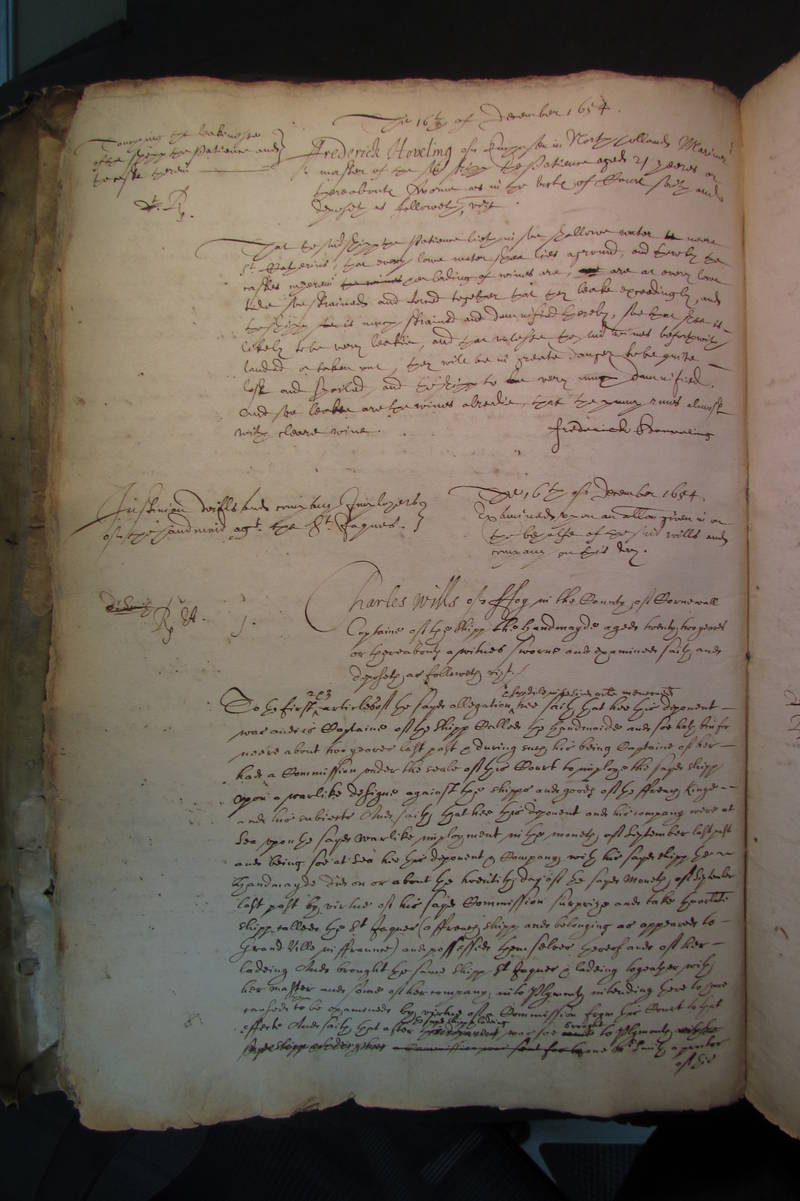 The 16th of December 1654.
Touching the leakinesse
of the shipp the Patience and
the caske therein
Frederick Hoveling of in North Holland Mariner
master of the said shipp the Patience aged 21 yeeres or
thereabouts sworne as in the Court saith and
deposeth as followeth, vizt.
Rp.
That the said shipp the Patience lieth in soe shallowe water neere
St Katherins, that every lowe water shee lies aground, and thereby the
caskes wherein the wines her lading of wines are, are at every lowe
tide soe strained and together that they leake exceedingly, and
the shipp is much strained and damnified thereby, soe that shee is
likely to be very leakie, and that unlesse the said wines be
landed or taken out, they will be in greate danger to be quite
lost and spoiled, and the shipp to be very much damnified.
And soe leakie are the wines alreadie, that the pump runs almost
with cleere wine.
Frederick
The 16th of December 1654.
Wills and company Imployers
of the handmaid agt. the St. Jaques.
Examined upon an allon given in on
the behalfe of the said Wills and
company on this day.
Rp. A. 1.
Charles Wills of ffoy in the County of Cornewall
Captaine of the shipp the Handmayde aged twenty two yeares
or thereabouts a witnes sworne and examined saith and
deposeth as followeth vizt.
To the first 2 & 3 articles of the sayd allegation hee saith that hee this deponent
was and is Captaine of the shipp called the Handmaide and soe hath bin for
neere about two yeares last past & during such his being Captaine of her
had a Commission under the seale of this Court to imploy the sayd shipp
upon a warlike designe against the shipps and goods of the ffrench Kinge
and his subiects And saith that hee this deponent and his company were at
Sea upon the sayd warlike imployment in the moneth of September last past
and being soe at Sea hee this deponent & Company with his sayd shipp the
Handmayde did on or about the twentith day of the sayd moneth of September
last past by virtue of his sayd Commission surprize and take
shipp called the St Jaques (a ffrench shipp and belonging as appeared to
Grand Ville in ffrance) and possessed them selves thereof and of her
ladeing And brought the same shipp St Jaques & ladeing togeather with
her master and some of her company, into Plymouth intending there to
caused to be examined by virtue of a Commission from this Court to that
effecte And saith that after was soe brought to Plymouth
sayd shipp one Mr Smith a proctor
of the